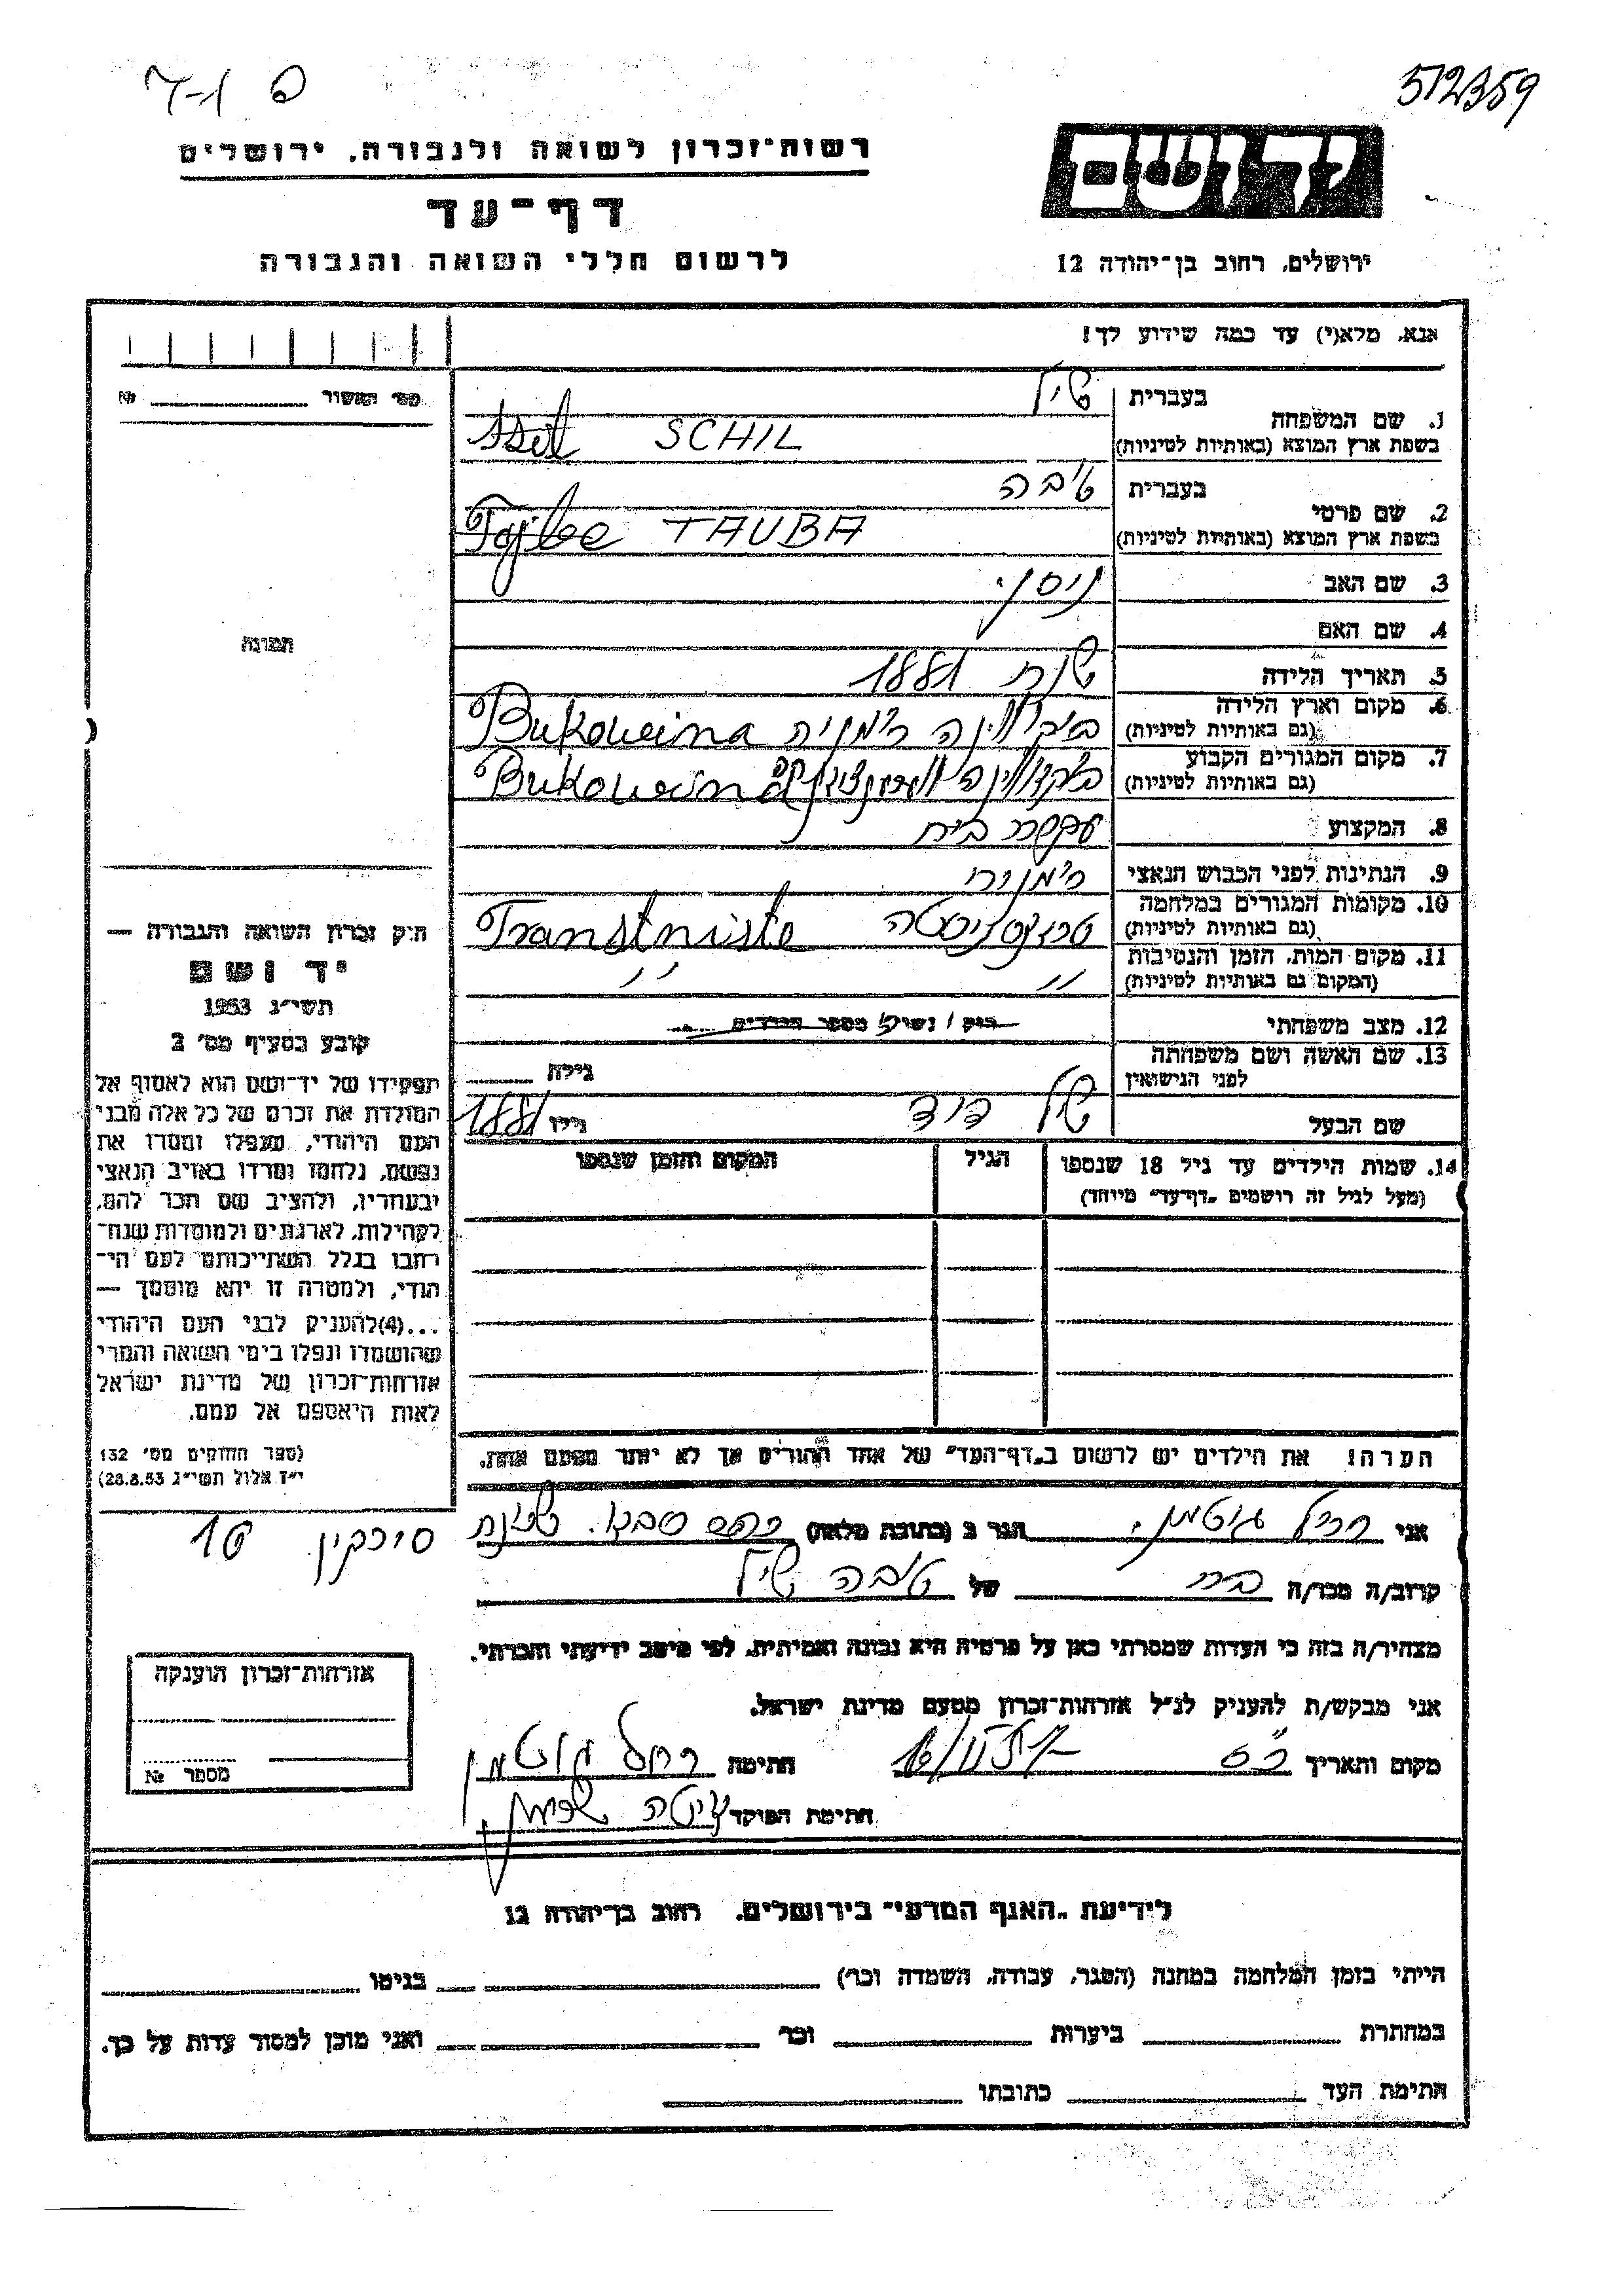 512359
רשות-זכרון לשואה ולגבורה, ירושלים
דף-עד
לרשום חללי השואה והגבורה
יד ושם
ירושלים, רחוב בן-יהודה 12
אנא, מלא(י) עד כמה שידוע לך!
מס' האשור №
1. שם המשפחה
בעברית שיל
בשפת ארץ המוצא (באותיות לטיניות) SCHIL
2. שם פרטי
בעברית טיבה
בשפת ארץ המוצא (באותיות לטיניות) TAUBA
3. שם האב ניסן
4. שם האם
5. תאריך הלידה שנת 1881
6. מקום וארץ הלידה
(גם באותיות לטיניות) רומניה Bukoveina
7. מקום המגורים הקבוע
(גם באותיות לטיניות) Bukoveina
8. המקצוע עקרת בית
9. הנתינות לפני הכבוש הנאצי רומנית
10. מקומות המגורים במלחמה
(גם באותיות לטיניות) Transtniste
11. מקום המות, הזמן והנסיבות
(המקום גם באותיות לטיניות) " "
12. מצב משפחתי רוק / נשוי / מספר הילדים
13. שם האשה ושם משפחתה
לפני הנישואין גילה
שם הבעל שיל דוד גילו 1881
14. שמות הילדים עד גיל 18 שנספו
(מעל לגיל זה רושמים „דף-עד" מיוחד)
הגיל
המקום והזמן שנספו
הערה! את הילדים יש לרשום ב„דף-העד" של אחד ההורים אך לא יותר מפעם אחת.
תמונה
חוק זכרון השואה והגבורה —
יד ושם
תשי"ג 1953
קובע בסעיף מס' 2
תפקידו של יד-ושם הוא לאסוף אל
המולדת את זכרם של כל אלה מבני
העם היהודי, שנפלו ומסרו את
נפשם, נלחמו ומרדו באויב הנאצי
ובעוזריו, ולהציב שם וזכר להם,
לקהילות, לארגונים ולמוסדות שנח־
רבו בגלל השתייכותם לעם הי־
הודי, ולמטרה זו יהא מוסמך —
...(4)להעניק לבני העם היהודי
שהושמדו ונפלו בימי השואה והמרי
אזרחות-זכרון של מדינת ישראל
לאות היאספם אל עמם.
(ספר החוקים מס' 132
י"ז אלול תשי"ג 28.8.53)
אני רחל גוטמן הגר ב (כתובת מלאה) כפר סבא, שכונת
סירקין 16
קרוב/ה מכר/ה בת של טובה שיל
מצהיר/ה בזה כי העדות שמסרתי כאן על פרטיה היא נכונה ואמיתית, לפי מיטב ידיעתי והכרתי.
אני מבקש/ת להעניק לנ"ל אזרחות-זכרון מטעם מדינת ישראל.
מקום ותאריך כ"ס חתימה רחל גוטמן
חתימת הפוקד
אזרחות-זכרון הוענקה
מספר №
לידיעת „האגף המדעי" בירושלים, רחוב בן-יהודה 12
הייתי בזמן המלחמה במחנה (הסגר, עבודה, השמדה וכו') בגיטו
במחתרת ביערות וכו' ואני מוכן למסור עדות על כך.
חתימת העד כתובתו